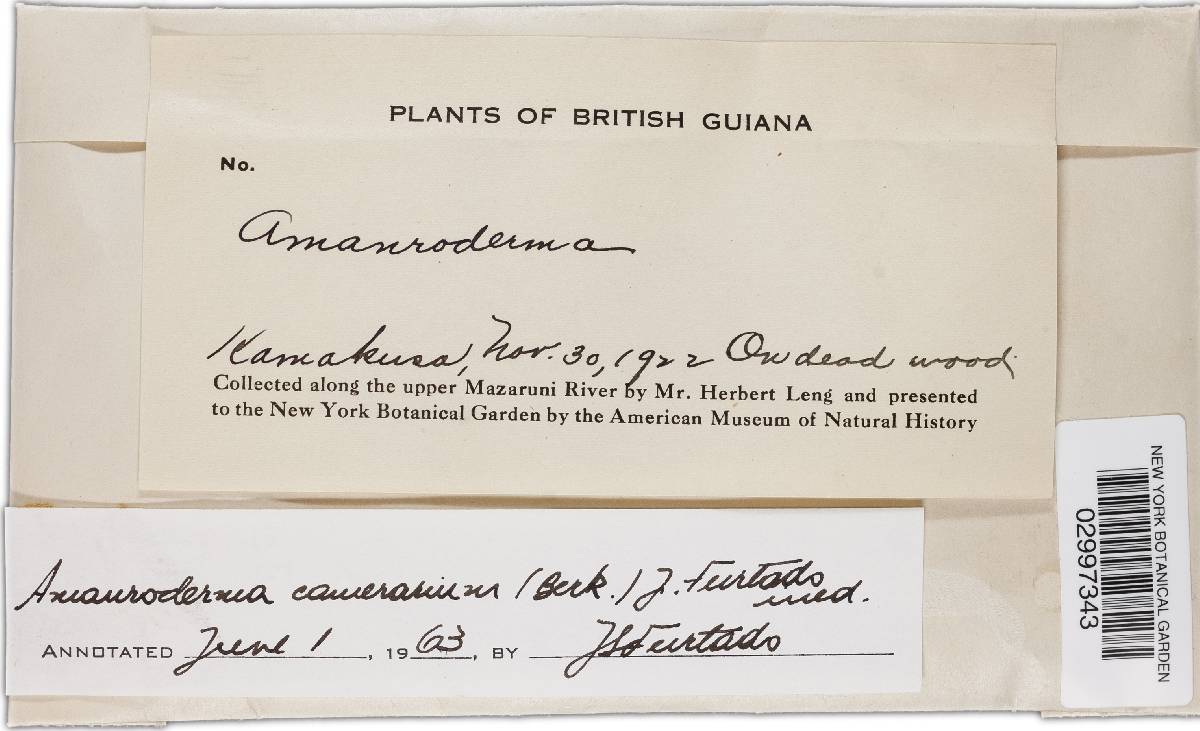 PLANTS OF BRITISH GUIANA
No.
Amauroderma
Kamakusa, Nov. 30, 1922 On dead wood
Collected along the upper Mazaruni River by Mr. Herbert Leng and presented
to the New York Botanical Garden by the American Museum of Natural History
Amauroderma camerarium (Berk.) J. Furtado
ined.
ANNOTATED June 1, 1963, BY JS Furtado
NEW YORK BOTANICAL GARDEN
02997343